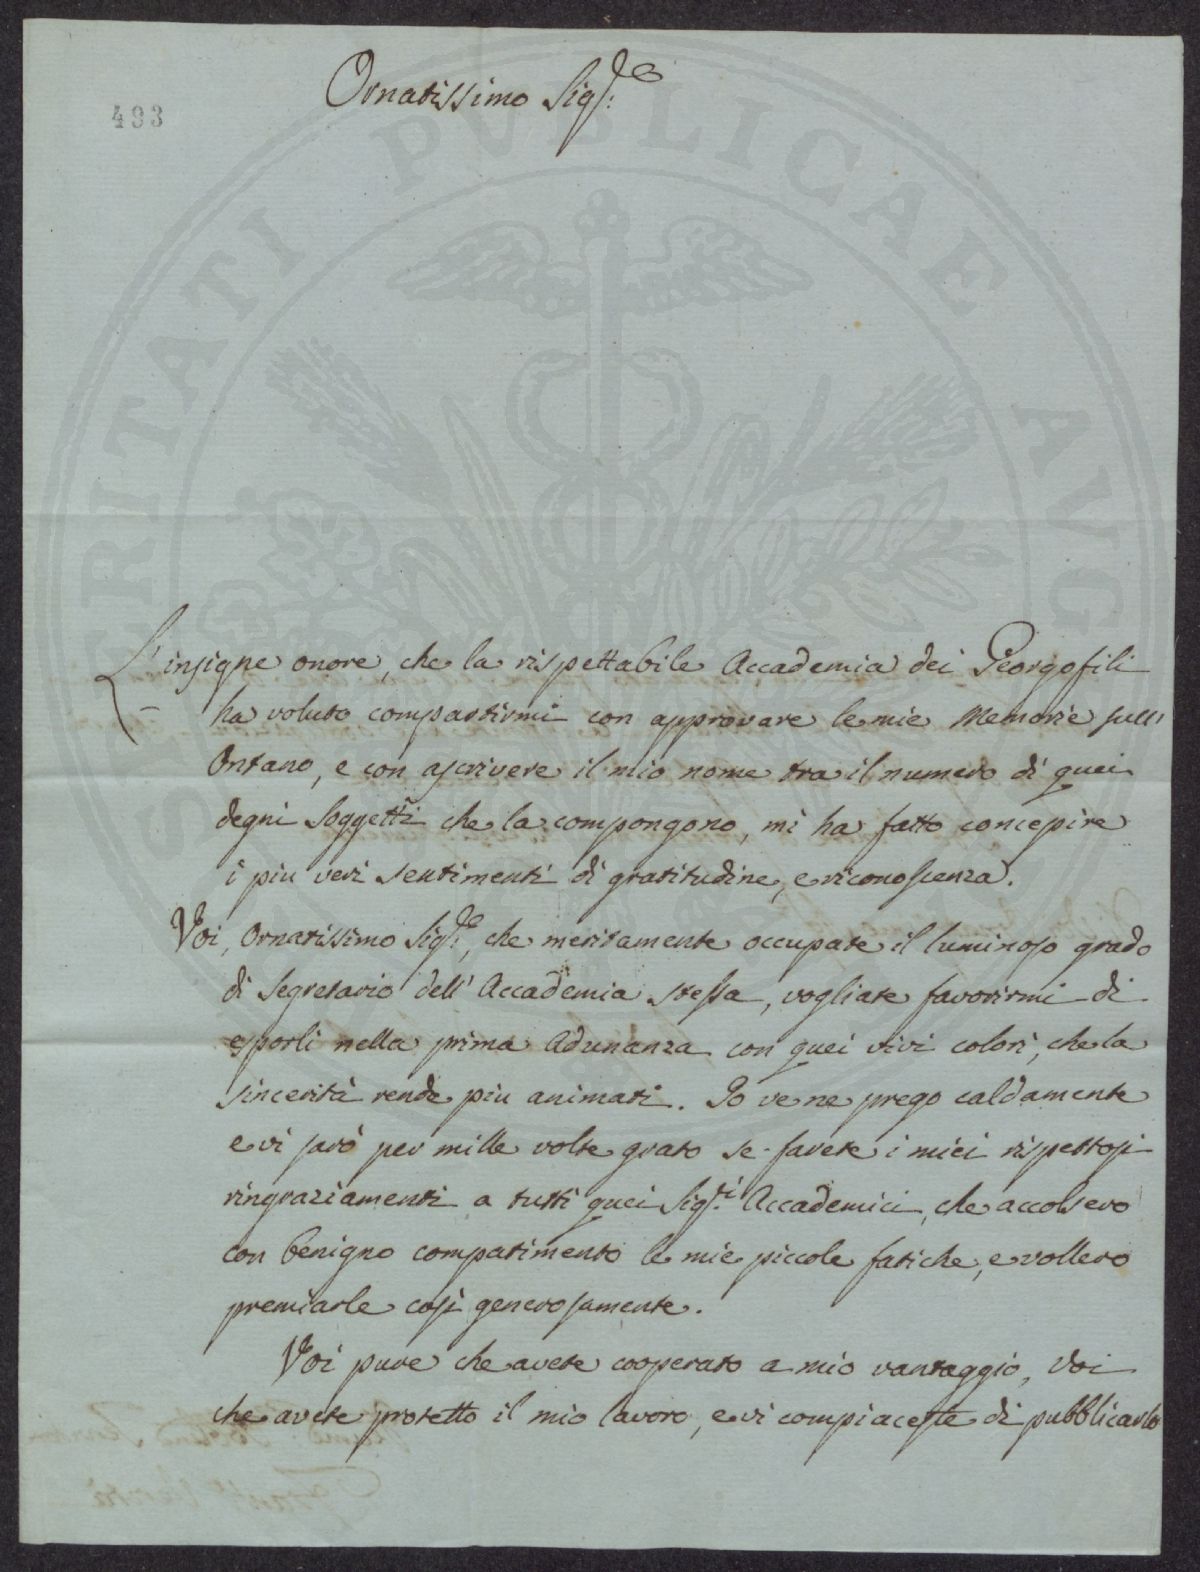 493
Ornatissimo Sig.re
L'insigne onore, che la rispettabile Accademia dei Georgofili
ha voluto compartirmi con approvare le mie Memorie sull'
Ontano, e con ascrivere il mio nome tra il numero di quei
degni Soggetti che la compongono, mi ha fatto concepire
i piu veri sentimenti di gratitudine, e riconoscenza.
Voi, Ornatissimo Sig.re, che meritamente occupate il luminoso grado
di Segretario dell'Accademia stessa, vogliate favorirmi di
esporli nella prima Adunanza con quei vivi colori, che la
sincerità rende piu animati. Io ve ne prego caldamente
e vi sarò per mille volte grato se farete i miei rispettosi
ringraziamenti a tutti quei Sig.ri Accademici, che accolsero
con benigno compatimento le mie piccole fatiche, e vollero
premiarle così generosamente.
Voi pure che avete cooperato a mio vantaggio, Voi
che avete protetto il mio lavoro, e vi compiaceste di pubblicarlo
PUBLICAE